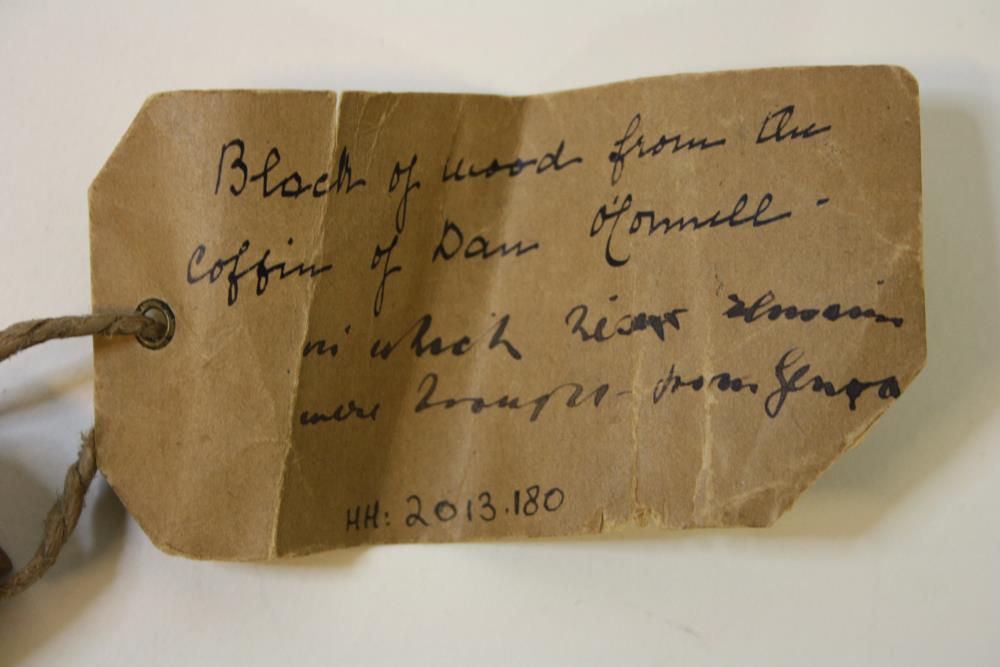 Block of wood from the
coffin of Dan O'Connell -
in which remains
were brought from Genoa
HH: 2013.180